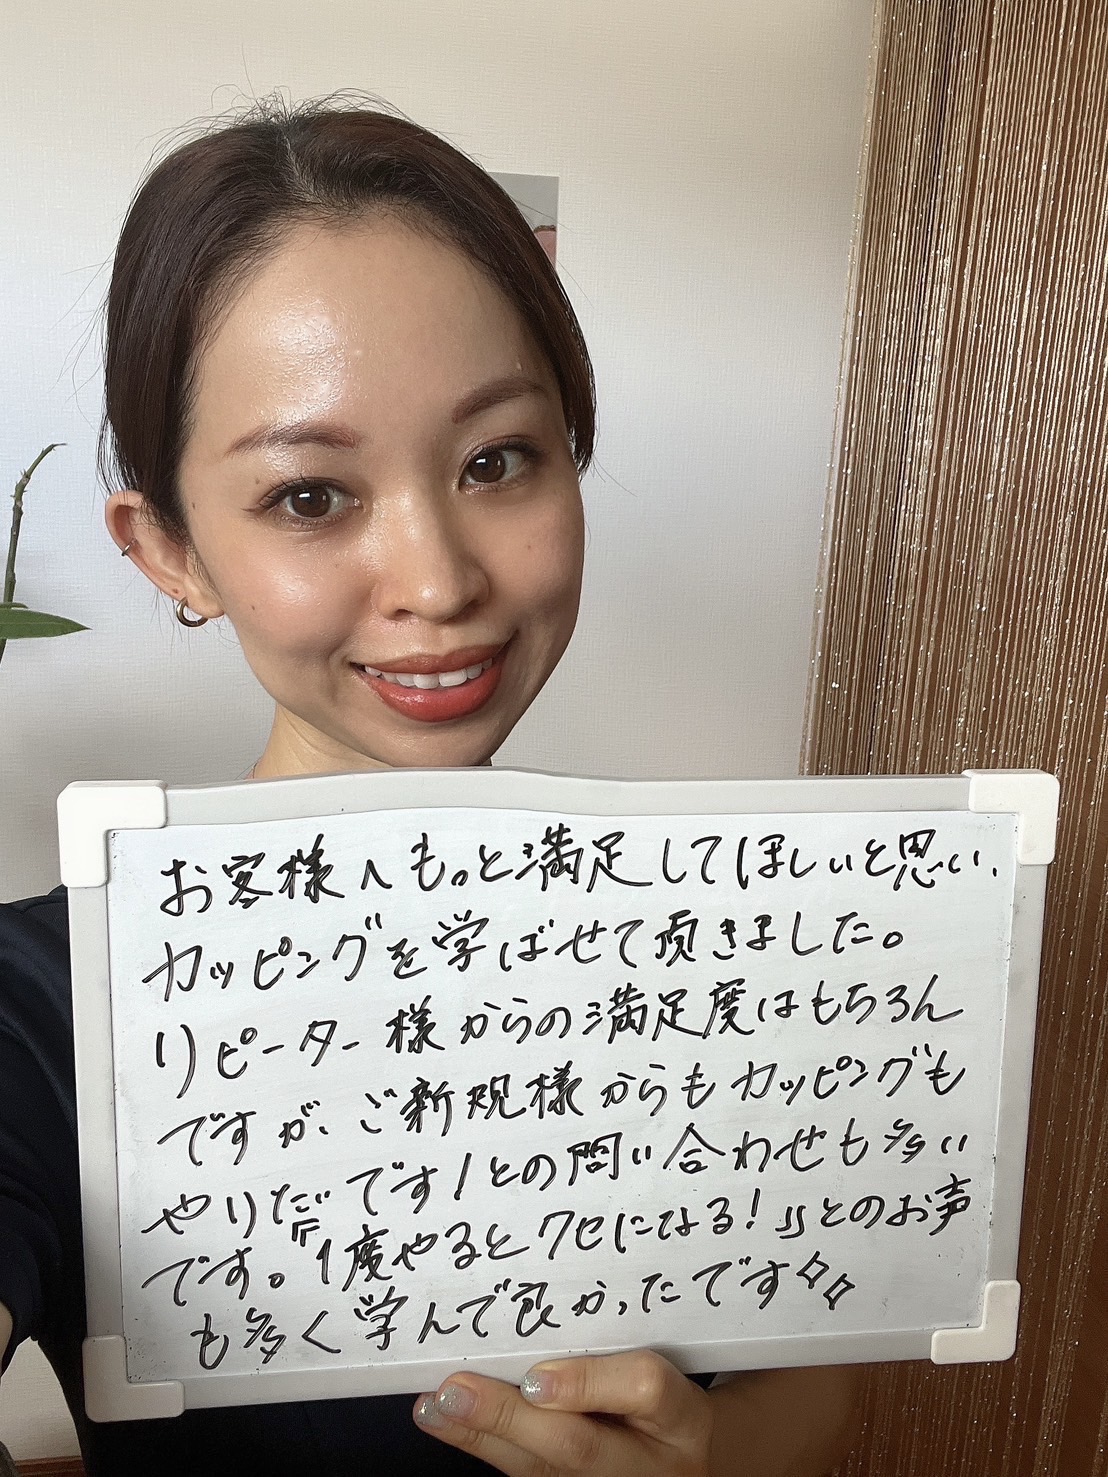 お客様へもっと満足してほしいと思い、
カッピングを学ばせて頂きました。
リピーター様からの満足度はもちろん
ですが、ご新規様からもカッピングも
やりたいです!との問い合わせも多い
です。『1度やるとクセになる!』とのお声
も多く学んで良かったです✧✧